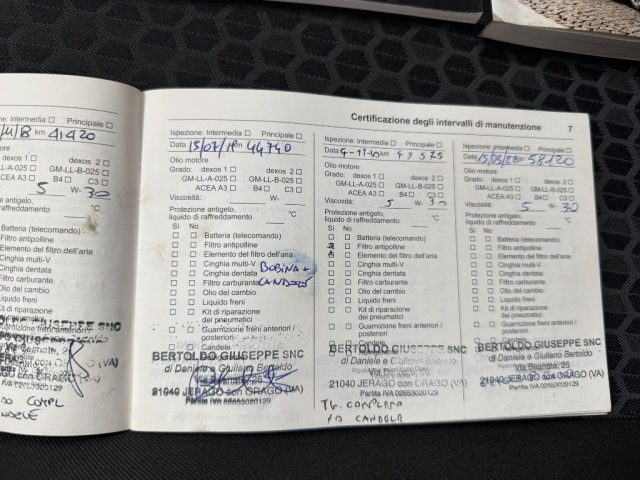 Certificazione degli intervalli di manutenzione 7
Principale
km 41420
dexos 1 dexos 2
GM-LL-B-025
ACEA A3 B4 C3
5 W- 30
Protezione antigelo,
°C
Batteria (telecomando)
Filtro antipolline
Elemento del filtro dell'aria
Cinghia multi-V
Cinghia dentata
Filtro carburante
Olio del cambio
Liquido freni
Kit di riparazione
dei pneumatici
GIUSEPPE SNC
Ispezione: Intermedia Principale
Data 15/07/ km 44740
Olio motore
Grado: dexos 1 dexos 2
GM-LL-A-025 GM-LL-B-025
ACEA A3 B4 C3
Viscosità: W-
Protezione antigelo,
liquido di raffreddamento °C
Sì No
Batteria (telecomando)
Filtro antipolline
Elemento del filtro dell'aria
Cinghia multi-V
Cinghia dentata
BOBINA +
Filtro carburante
Olio del cambio
Liquido freni
Kit di riparazione
dei pneumatici
Guarnizione freni anteriori /
posteriori
Candele
BERTOLDO GIUSEPPE SNC
di Daniele e Giuliano Bertoldo
21040 JERAGO con ORAGO (VA)
Partita IVA 02653020129
Ispezione: Intermedia Principale
Data km
Olio motore
Grado: dexos 1 dexos 2
GM-LL-A-025 GM-LL-B-025
ACEA A3 B4 C3
Viscosità: 5 W- 30
Protezione antigelo,
liquido di raffreddamento °C
Sì No
Batteria (telecomando)
Filtro antipolline
Elemento del filtro dell'aria
Cinghia multi-V
Cinghia dentata
Filtro carburante
Olio del cambio
Liquido freni
Kit di riparazione
dei pneumatici
Guarnizione freni anteriori /
posteriori
Candele
BERTOLDO GIUSEPPE SNC
di Daniele e Giuliano Bertoldo
21040 JERAGO con ORAGO (VA)
Partita IVA 02653020129
CANDELA
Ispezione: Intermedia Principale
Data km 58120
Olio motore
Grado: dexos 1 dexos 2
GM-LL-A-025 GM-LL-B-025
ACEA A3 B4 C3
Viscosità: 5 W- 30
Protezione antigelo,
liquido di raffreddamento °C
Sì No
Batteria (telecomando)
Filtro antipolline
Elemento del filtro dell'aria
Cinghia multi-V
Cinghia dentata
Filtro carburante
Olio del cambio
Liquido freni
Kit di riparazione
dei pneumatici
Guarnizione freni anteriori /
posteriori
Candele
BERTOLDO GIUSEPPE SNC
di Daniele e Giuliano Bertoldo
Via Beanate, 26
21040 JERAGO con ORAGO (VA)
Partita IVA 02653020129